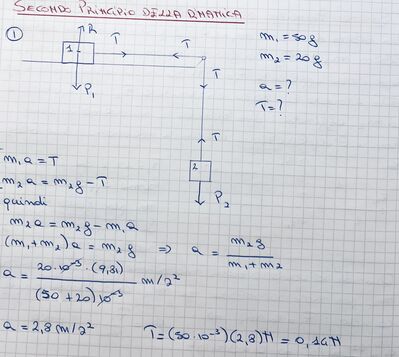 SECONDO PRINCIPIO DELLA DINAMICA
①
R
1
T
T
P₁
T
T
2
P₂
m₁ = 50g
m₂ = 20g
a = ?
T = ?
m₁a = T
m₂a = m₂g - T
quindi
m₂a = m₂g - m₁a
(m₁+m₂)a = m₂g ⇒ a = m₂g / (m₁+m₂)
a = 20·10⁻³·(9,8) / (50+20)10⁻³ m/s²
a = 2,8 m/s² T = (50·10⁻³)(2,8)N = 0,14N